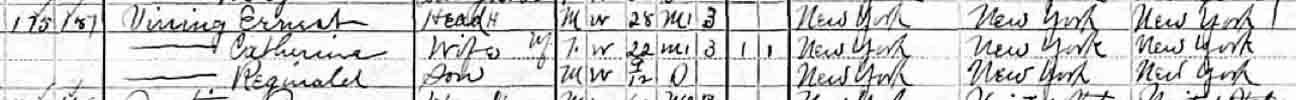 175 181 Vining Ernest Head H M W 28 M1 3 New York New York New York 1
— Catherine Wife W F. W 22 M1 3 1 1 New York New York New York
— Reginald Son M W 9/12 D New York New York New York